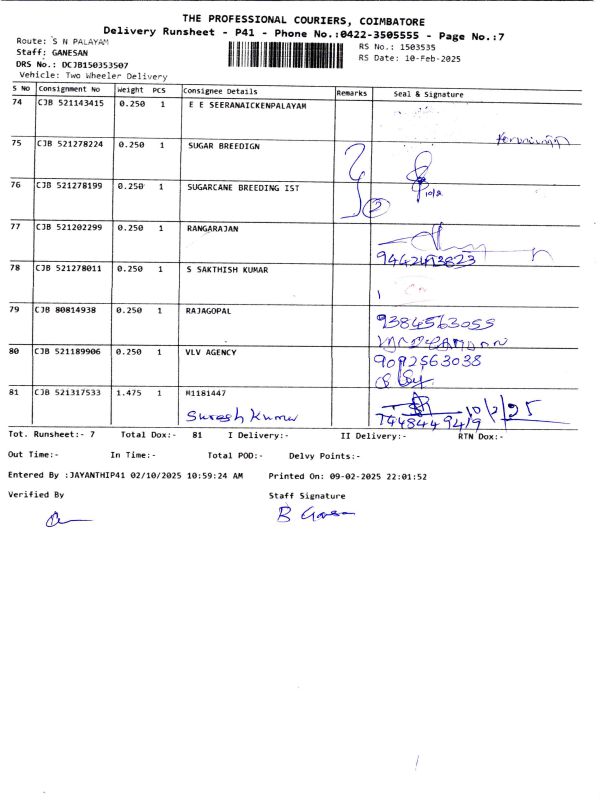 THE PROFESSIONAL COURIERS, COIMBATORE
Delivery Runsheet - P41 - Phone No.:0422-3505555 - Page No.:7
Route: S N PALAYAM
RS No.: 1503535
Staff: GANESAN
RS Date: 10-Feb-2025
DRS No.: DCJB150353507
Vehicle: Two Wheeler Delivery
S No Consignment No Weight PCS Consignee Details Remarks Seal & Signature
74 CJB 521143415 0.250 1 E E SEERANAICKENPALAYAM
75 CJB 521278224 0.250 1 SUGAR BREEDIGN
76 CJB 521278199 0.250 1 SUGARCANE BREEDING IST 2 10/2
77 CJB 521202299 0.250 1 RANGARAJAN
9442493823
78 CJB 521278011 0.250 1 S SAKTHISH KUMAR
79 CJB 80814938 0.250 1 RAJAGOPAL 9384563055
80 CJB 521189906 0.250 1 VLV AGENCY 9092563038
81 CJB 521317533 1.475 1 M1181447
Suresh Kumar 10/2/25
7448449419
Tot. Runsheet:- 7 Total Dox:- 81 I Delivery:- II Delivery:- RTN Dox:-
Out Time:- In Time:- Total POD:- Delvy Points:-
Entered By :JAYANTHIP41 02/10/2025 10:59:24 AM Printed On: 09-02-2025 22:01:52
Verified By Staff Signature
B Ganesan